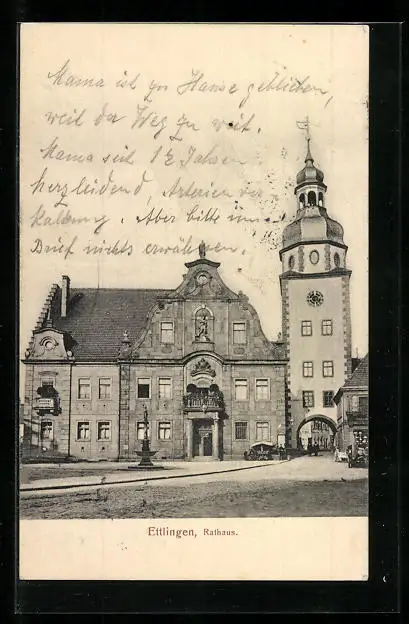 Mama ist zu Hause geblieben,
weil da der Weg zu weit.
Mama seit 1½ Jahren
herzleidend, Arterien ver
kalkung. Aber bitte im
Brief nichts erwähnen.
Ettlingen, Rathaus.